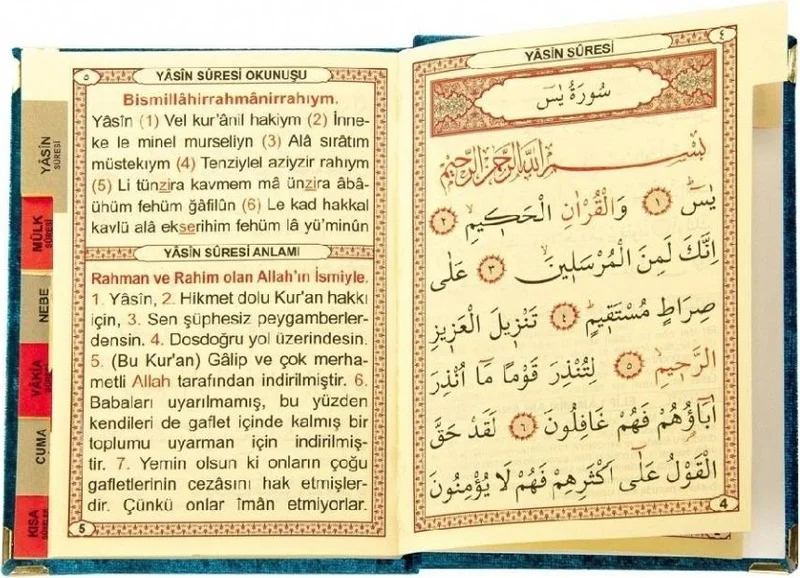 YÂSİN
SÛRESİ
MÜLK
SÛRESİ
NEBE
VÂKIA
SÛRESİ
CUMA
KISA
SÛRELER
٥
YÂSÎN SÛRESİ OKUNUŞU
Bismillâhirrahmânirrahıym.
Yâsîn (1) Vel kur'ânil hakiym (2) İnne-
ke le minel murseliyn (3) Alâ sırâtım
müstekıym (4) Tenziylel aziyzir rahıym
(5) Li tünzira kavmem mâ ünzira âbâ-
ühüm fehüm gâfilûn (6) Le kad hakkal
kavlü alâ ekserihim fehüm lâ yü'minûn
YÂSÎN SÛRESİ ANLAMI
Rahman ve Rahim olan Allah'ın İsmiyle.
1. Yâsîn, 2. Hikmet dolu Kur'an hakkı
için, 3. Sen şüphesiz peygamberler-
densin. 4. Dosdoğru yol üzerindesin.
5. (Bu Kur'an) Gâlip ve çok merha-
metli Allah tarafından indirilmiştir. 6.
Babaları uyarılmamış, bu yüzden
kendileri de gaflet içinde kalmış bir
toplumu uyarman için indirilmiş-
tir. 7. Yemin olsun ki onların çoğu
gafletlerinin cezasını hak etmişler-
dir. Çünkü onlar îmân etmiyorlar.
5
٤
YÂSİN SÛRESİ
سُورَةُ يٰسٓ
بِسْمِ اللّٰهِ الرَّحْمٰنِ الرَّحِيمِ
يٰسٓ ﴿١﴾ وَالْقُرْاٰنِ الْحَكِيمِ ﴿٢﴾
اِنَّكَ لَمِنَ الْمُرْسَلِينَ ﴿٣﴾ عَلٰى
صِرَاطٍ مُسْتَقِيمٍ ﴿٤﴾ تَنْزِيلَ الْعَزِيزِ
الرَّحِيمِ ﴿٥﴾ لِتُنْذِرَ قَوْمًا مَٓا اُنْذِرَ
اٰبَٓاؤُ۬هُمْ فَهُمْ غَافِلُونَ ﴿٦﴾ لَقَدْ حَقَّ
الْقَوْلُ عَلٰٓى اَكْثَرِهِمْ فَهُمْ لَا يُؤْمِنُونَ
4